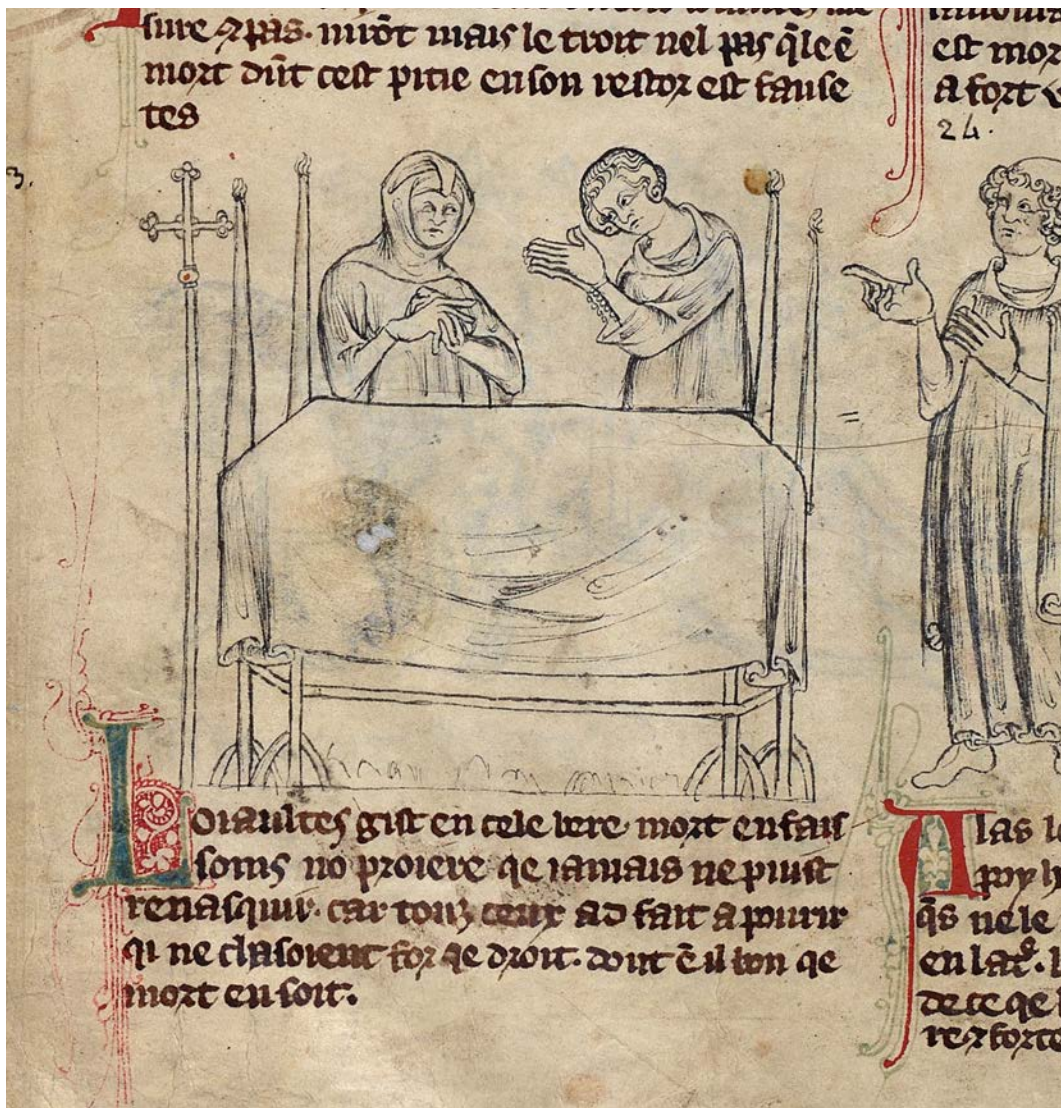 sure ⁊ pas. mirōt mais le troit nel pas q̄ le ē
mort dūt cest pitie en son restor est fause
tes
3.
Loiaultes gist en cele bere mort en fais
soms no proiere qe iamais ne piust
renasquir. car touz ceux ad fait a pourir
qi ne chasoient for qe droit. dont ē il bon qe
mort en soit.
est mor
a fort
24.
Alas
poy h
qs̄ ne le
en
de ce qe
re ⁊ forte